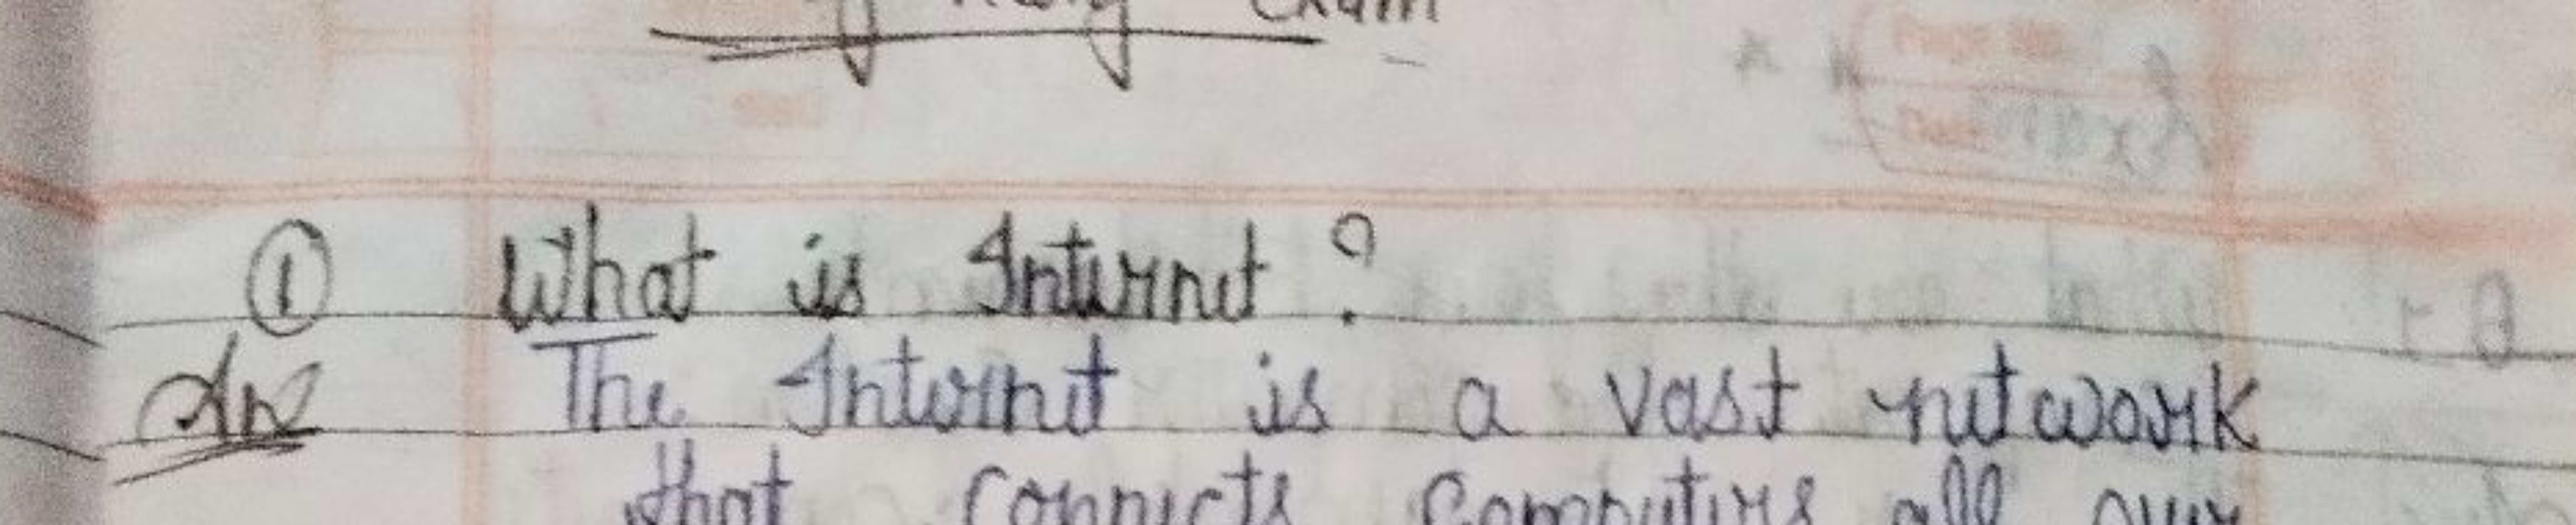 Exam
① What is Internet?
Ans The Internet is a vast network
that connects Computers all over